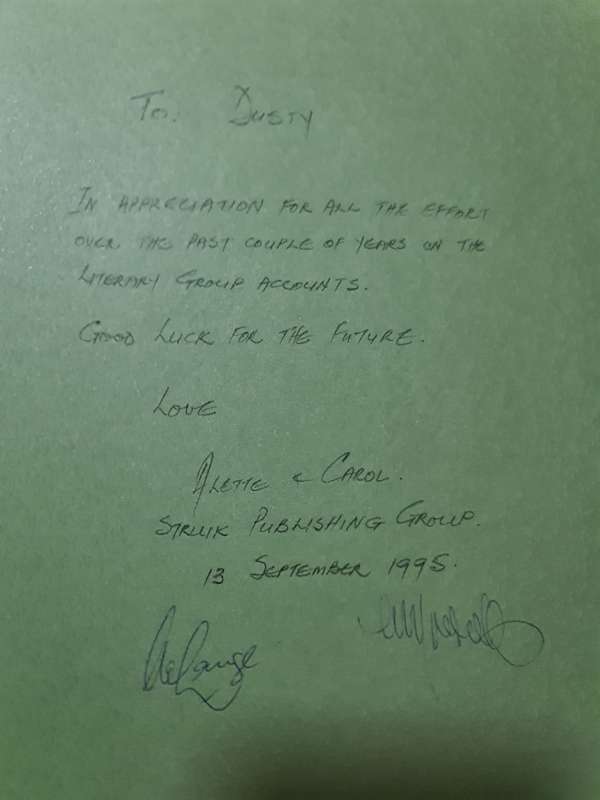 To. Dusty
In appreciation for all the effort
over the past couple of years on the
Literary Group accounts.
Good Luck for the Future.
Love
Alette & Carol.
Struik Publishing Group.
13 September 1995.